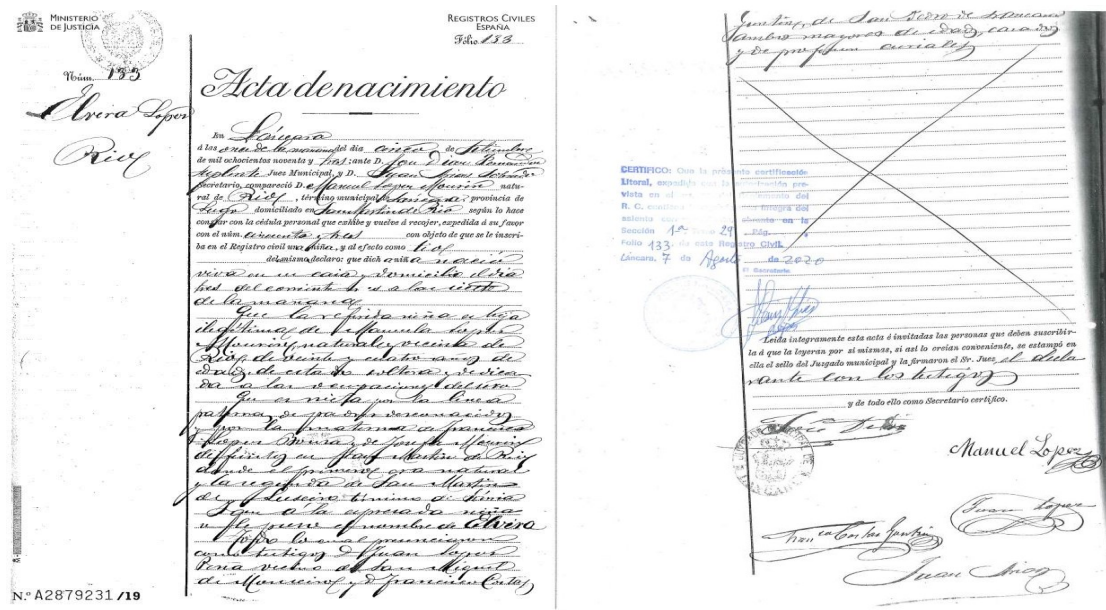 MINISTERIO
DE JUSTICIA
REGISTROS CIVILES
ESPAÑA
Folio 133
Núm. 133
Elvira Lopez
Rios
Acta de nacimiento
En Láncara
á las once de la mañana del dia cinco de Setiembre
de mil ochocientos noventa y tres; ante D. José Diaz Fernandez
Suplente Juez Municipal, y D. Juan Arias
Secretario, compareció D. Manuel Lopez Mouriz natu-
ral de Rios, término municipal Láncara, provincia de
Lugo domiciliado en San Martin de Rio según lo hace
constar con la cédula personal que exhibe y vuelve á recojer, expedida á su favor
con el núm. cincuenta y tres con objeto de que se le inscri-
ba en el Registro civil una niña, y al efecto como tio
del mismo declaro: que dicha niña nació
viva en su casa y domicilio el dia
tres del corriente mes a las siete
de la mañana
Que la referida niña es hija
ilegitima de Manuela Lopez
Mouriz, natural y vecina de
Rios, de veinte y cuatro años de
edad, de estado soltera, y dedica-
da a las ocupaciones del sexo
Que es nieta por la linea
paterna de padres desconocidos
y por la materna de Francisco
Lopez y de Josefa Mouriz
difuntos en San Martin de Rios
donde el primero era natural
y la segunda de San Martin
de término de Sárria
Y que á la expresada niña
se le puso el nombre de Elvira
Todo lo cual presenciaron
como testigos D. Juan Lopez
Peña vecino de San Miguel
de y D. Francisco Costas
N.º A2879231 /19
Guntin, de San Pedro de Láncara
ambos mayores de edad, casados
y de profesion curiales
CERTIFICO: Con la presente certificación
Litoral, expedida con la pre-
vista en el del
R. C. integra del
asiento en la
Sección 1ª 29 Pág.
Folio 133 de este Registro Civil.
Láncara, 7 de Agosto de 2020
El Secretario
Leída íntegramente esta acta é invitadas las personas que deben suscribir-
la á que la leyeran por si mismas, si así lo creían conveniente, se estampó en
ella el sello del Juzgado municipal y la firmaron el Sr. Juez el decla
rante con los testigos
y de todo ello como Secretario certifico.
José Diaz
Manuel Lopez
Juan Lopez
Franco Costas Guntin
Juan Arias